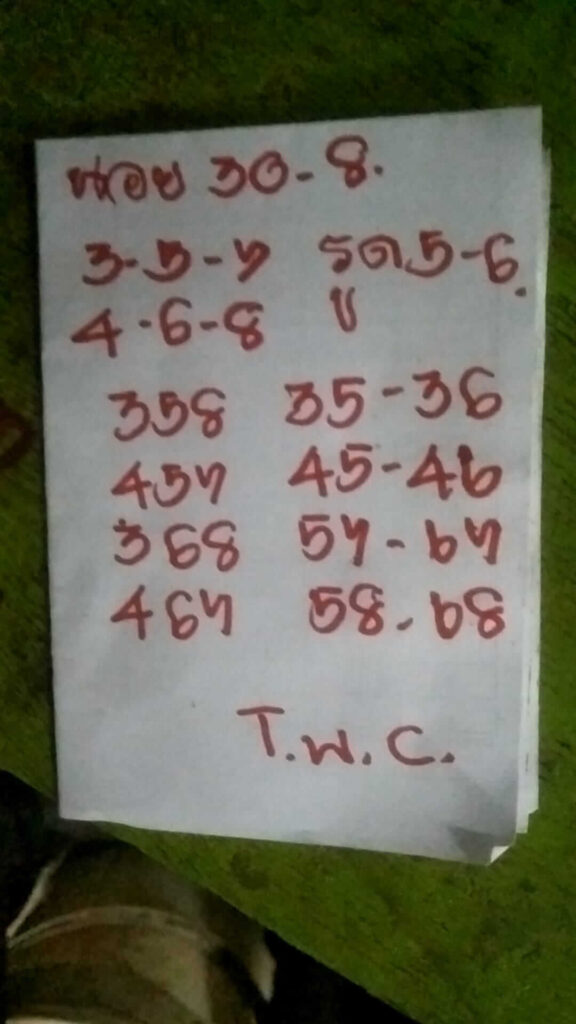 หอย 30-8.
3-5-7 รูด 5-6.
4-6-8 บ
358 35-36
457 45-46
368 57-67
467 58-68
T.W.C.